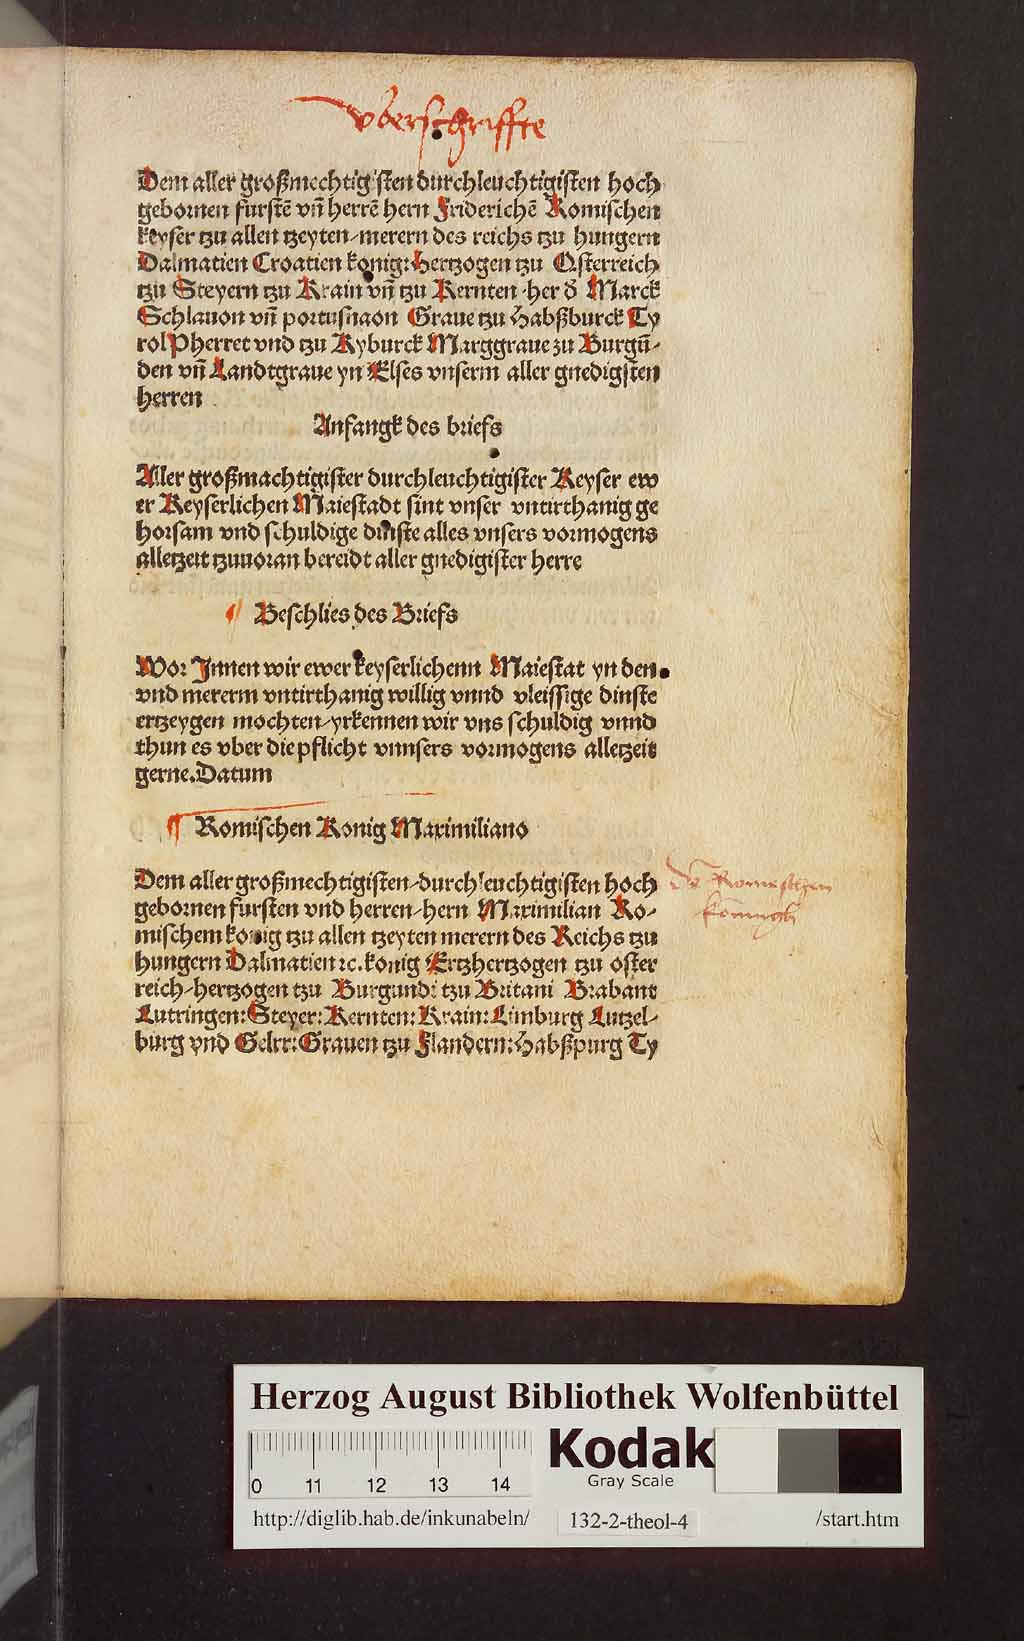 vberschriffte
Dem aller großmechtigisten durchleuchtigisten hoch
gebornen furstē vn̄ herrē hern Friderichē Romischen
keyser tzu allen tzeyten-merern des reichs tzu hungern
Dalmatien Croatien konig: hertzogen tzu Osterreich
tzu Steyern tzu Krain vn̄ tzu Kernten her ð Marck
Schlauon vn̄ portusnaon Graue tzu Habßburck Ty
rol Pherret vnd tzu Kyburck Marggraue zu Burgū-
den vn̄ Landtgraue yn Elses vnserm aller gnedigsten
herren
Anfangk des briefs
Aller großmachtigister durchleuchtigister Keyser ew
er Keyserlichen Maiestadt sint vnser vntirthanig ge
horsam vnd schuldige dinste alles vnsers vormogens
alletzeit tzuuoran bereidt aller gnedigister herre
¶ Beschlies des Briefs
Wor Jnnen wir ewer keyserlichenn Maiestat yn den
vnd mererm vntirthanig willig vnnd vleissige dinste
ertzeygen mochten-yrkennen wir vns schuldig vnnd
thun es vber die pflicht vnnsers vormogens alletzeit
gerne. Datum
¶ Romischen Konig Maximiliano
Dem aller großmechtigisten-durchleuchtigisten hoch
gebornen fursten vnd herren-hern Maximilian Ro-
mischem konig tzu allen tzeyten merern des Reichs tzu
hungern Dalmatien ⁊c. konig Ertzhertzogen tzu oster
reich-hertzogen tzu Burgundi tzu Britani Brabant
Lutringen: Steyer: Kernten: Krain: Limburg Lutzel-
burg vnd Gelrr: Grauen tzu Flandern: Habßpurg Ty
Romisschen
Herzog August Bibliothek Wolfenbüttel
0 11 12 13 14
Kodak
Gray Scale
http://diglib.hab.de/inkunabeln/ 132-2-theol-4 /start.htm